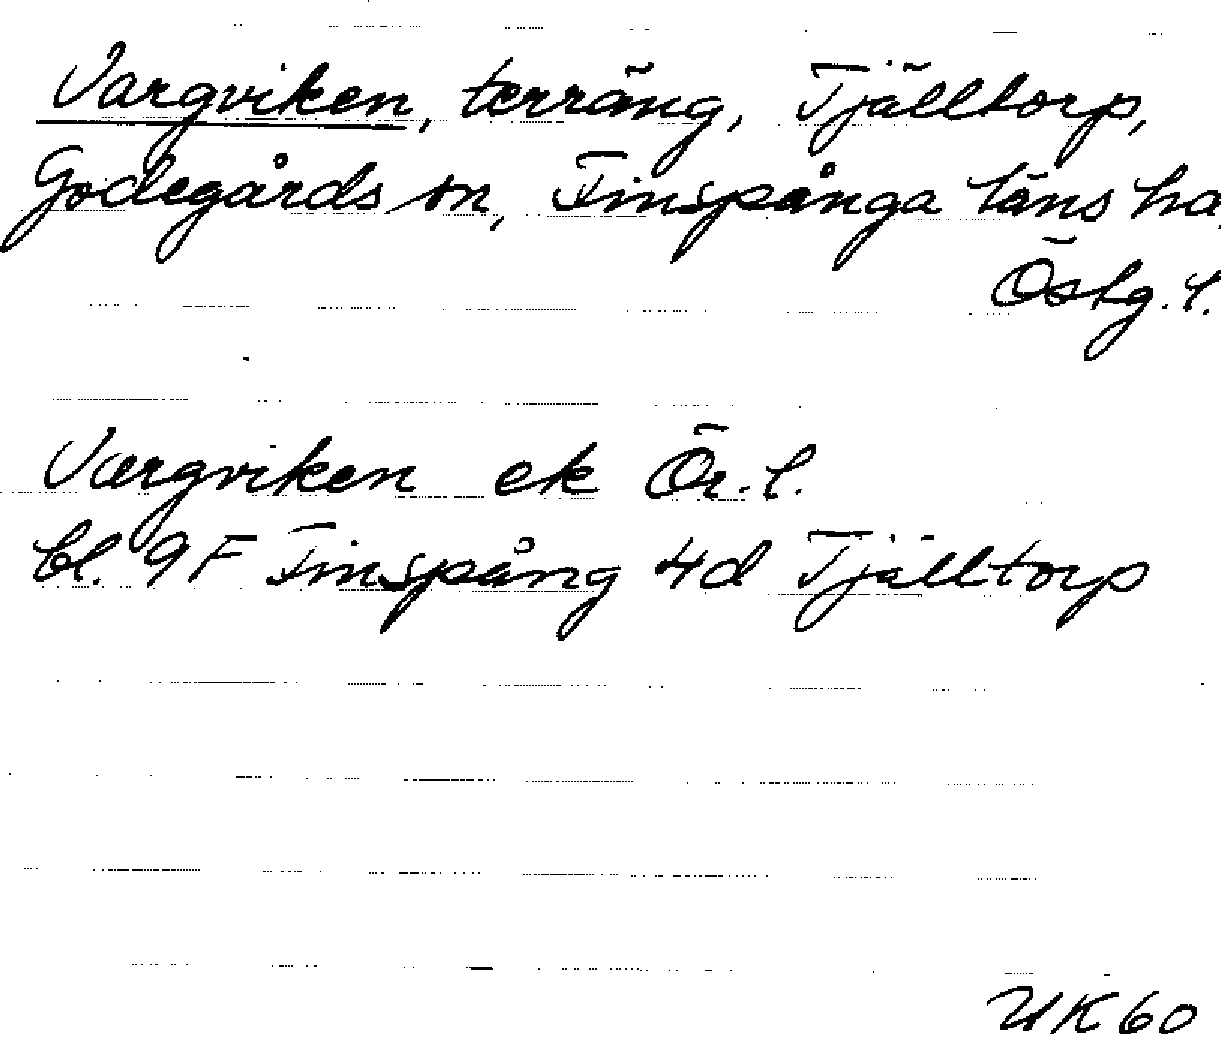 Vargviken, terräng, Tjälltorp,
Godegårds sn, Finspånga läns hd.
Östg. l.
Vargviken ek Ör. l.
bl. 9F Finspång 4d Tjälltorp
UK60